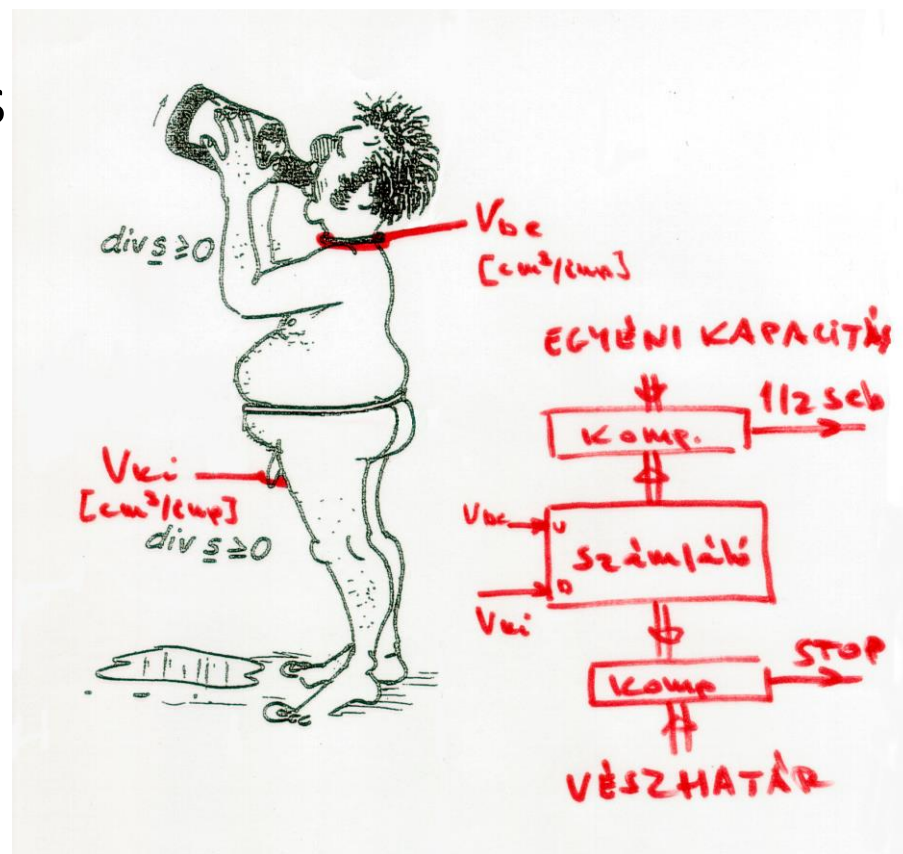 S
div s ≥ 0
Vbe
[cm³/imp]
EGYÉNI KAPACITÁS
1/2 seb
Komp.
Vki
[cm³/imp]
div s ≥ 0
Vbe
U
Számláló
D
Vki
STOP
Komp
VÉSZHATÁR